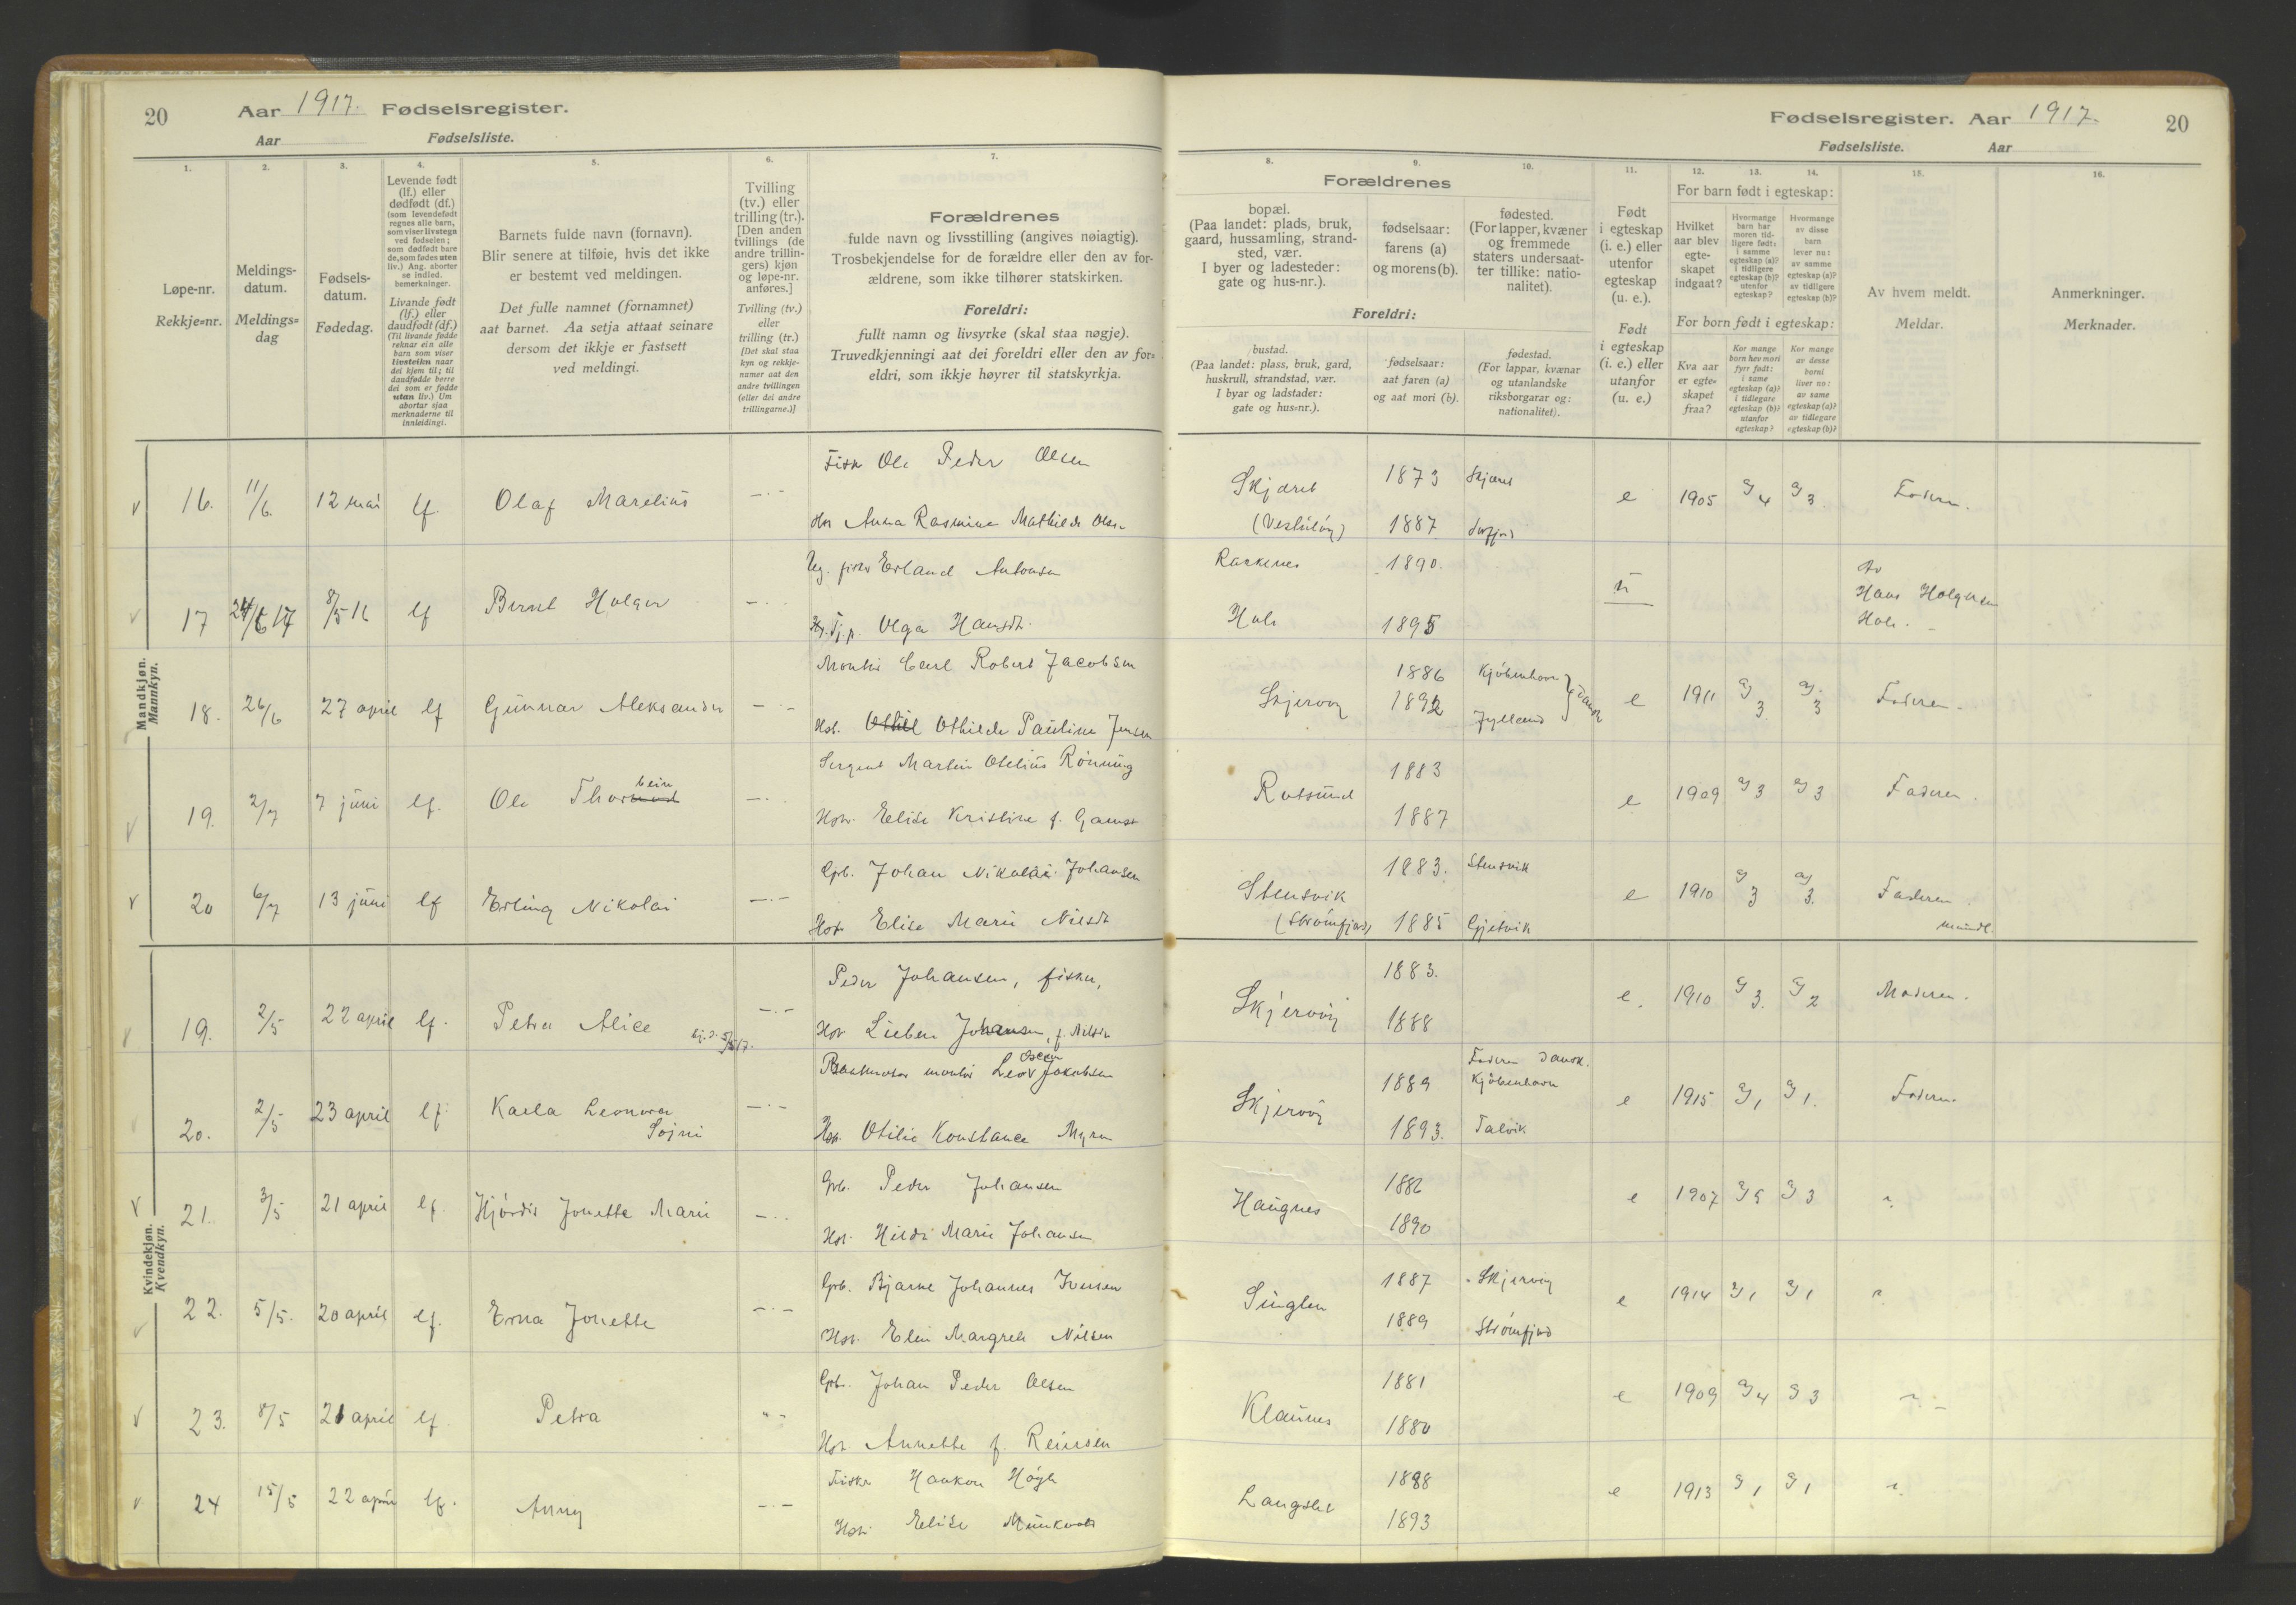 20
Aar 1917. Fødselsregister.
Aar Fødselsliste.
1.
2.
3.
4.
5.
6.
7.
Løpe-nr.
Rekkje=nr.
Meldings-
datum.
Meldings=
dag
Fødsels-
datum.
Fødedag.
Levende født
(lf.) eller
dødfødt (df.)
(som levendefødt
regnes alle barn,
som viser livstegn
ved fødselen;
som dødfødt bare
de, som fødes uten
liv.) Ang. aborter
se indled.
bemerkninger.
Livande født
(lf.) eller
daudfødt (df.)
(Til livande fødde
reknar ein alle
barn som viser
livsteikn naar
dei kjem til; til
daudfødde berre
dei som er fødde
utan liv.) Um
abortar sjaa
merknaderne til
innleidingi.
Barnets fulde navn (fornavn).
Blir senere at tilføie, hvis det ikke
er bestemt ved meldingen.
Det fulle namnet (fornamnet)
aat barnet. Aa setja attaat seinare
dersom det ikkje er fastsett
ved meldingi.
Tvilling
(tv.) eller
trilling (tr.).
[Den anden
tvillings (de
andre trillin-
gers) kjøn
og løpe-nr.
anføres.]
Tvilling (tv.)
eller
trilling (tr.)
[Det skal staa
kyn og rekkje-
numer aat den
andre tvillingen
(eller dei andre
trillingarne.)]
Forældrenes
fulde navn og livsstilling (angives nøiagtig).
Trosbekjendelse for de forældre eller den av for-
ældrene, som ikke tilhører statskirken.
Foreldri:
fullt namn og livsyrke (skal staa nøgje).
Truvedkjenningi aat dei foreldri eller den av for=
eldri, som ikkje høyrer til statskyrkja.
Mandkjøn.
Mannkyn.
16. 11/6. 12 mai lf. Olaf Marelius
Fisk Ole Peder Olsen
Anna Rasmine Mathilde Olsen
17 24/6 17 8/5 16 lf Bernt Holger
Ug. fisker Erland Antonsen
Tj.p. Olga Hansdt.
18. 26/6 27 april lf Gunnar Aleksander
Montør Carl Robert Jacobsen
Hst. Othilde Pauline Jensen
19. 2/7 7 juni lf. Ole Thorbein
Sergent Martin Otelius Rønning
Hstr. Elise Kristine f. Gamst
20 6/7 13 juni lf Erling Nikolai
Grb. Johan Nikolai Johansen
Hst. Elise Marie Nilsdt
Kvindekjøn.
Kvendkyn.
19. 2/5 22 april lf. Petra Alice
Peder Johansen, fisker,
Hst Lieben Johansen, f. Nilsen
20. 2/5 23 april lf. Kaela Leonora
Sojni
montør Leo Oscar Jakobsen
Hst. Otilie Konstance Myren
21. 3/5 21 april lf. Hjørdis Jonette Marie
Grb. Peder Johansen
Hst. Hilda Marie Johansen
22. 5/5. 20 april lf. Erna Jonette
Grb. Bjarne Johannes Iversen
Hst. Elen Margrete Nilsen
23. 8/5 21 april lf. Petra
Grb. Johan Peder Olsen
Hst. Annette f. Reiersen
24 15/5 22 april lf. Anny
Fisker Haakon Høgh
Hst. Elise Munkvold
Fødselsregister. Aar 1917. 20
Fødselsliste. Aar
8.
9.
10.
11.
12.
13.
14.
15.
16.
Forældrenes
bopæl.
(Paa landet: plads, bruk,
gaard, hussamling, strand-
sted, vær.
I byer og ladesteder:
gate og hus-nr.).
fødselsaar:
farens (a)
og morens (b).
fødested.
(For lapper, kvæner
og fremmede
staters undersaat-
ter tillike: natio-
nalitet).
Foreldri:
bustad.
(Paa landet: plass, bruk, gard,
huskrull, strandstad, vær.
I byar og ladstader:
gate og hus=nr.).
fødselsaar:
aat faren (a)
og aat mori (b).
fødestad.
(For lappar, kvænar
og utanlandske
riksborgarar og:
nationalitet).
Født
i egteskap
(i. e.) eller
utenfor
egteskap
(u. e.).
Født
i egteskap
(i. e.) eller
utanfor
(u. e.)
For barn født i egteskap:
Hvilket
aar blev
egte-
skapet
indgaat?
Hvormange
barn har
moren tid-
ligere født:
i samme
egteskap (a)?
i tidligere
egteskap (b)?
utenfor
egteskap?
Hvormange
av disse
barn
lever nu:
av samme
egteskap (a)?
av tidligere
egteskap (b)?
For born født i egteskap:
Kva aar
er egte=
skapet
fraa?
Kor mange
born hev mori
fyrr født:
i same
egteskap (a)?
i tidlegare
egteskap (b)?
utanfor
egteskap?
Kor mange
av desse
borni
liver no:
av same
egteskap (a)?
av tidlegare
egteskap (b)?
Av hvem meldt.
Meldar.
Anmerkninger.
Merknader.
Skjæret 1873 Skjæret
(Vestuløy) 1887
e 1905 a) 4 a) 3 Faderen.
1890.
Hole 1895
u
Av
Hans Holgersen
Hole.
Skjervøy 1886 Kjøbenhavn
1892 Jylland
Dansk
e 1911 a) 3 a) 3 Faderen.
Rotsund 1883
1887
e 1909 a) 3 a) 3 Faderen.
Stensvik 1883. Stensvik
(Straumfjord) 1885 Gjetvik
e 1910 a) 3 a) 3. Faderen.
mundtl.
Skjervøy 1883.
1888
e. 1910 a) 3. a) 2 Moderen.
Faderen dansk.
Skjervøy 1889 Kjøbenhavn
1893. Talvik
e 1915 a) 1 a) 1. Faderen.
Haugnes 1886
1890
e 1907 a) 5 a) 3
Singlen 1887 Skjervøy
1889 Straumfjord
e 1914 a) 1 a) 1
Klaunes 1881
1880
e 1909 a) 4 a) 3
Langslet 1888
1893
e 1913 a) 1 a) 1